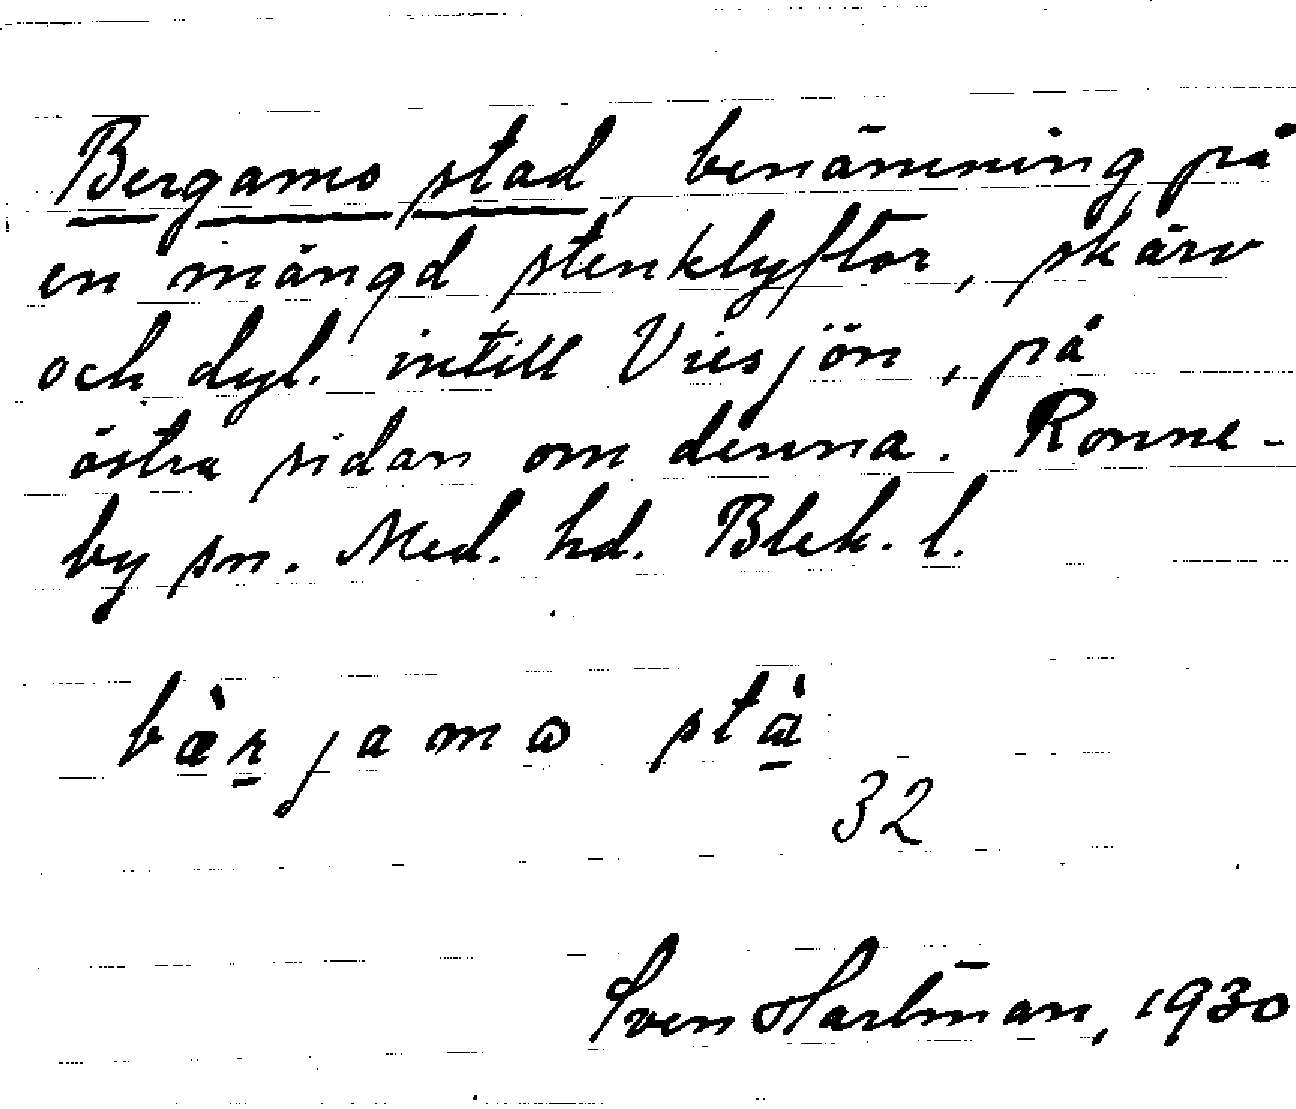 Bergamo stad, benämning på
en mängd stenklyftor, skärv
och dyl. intill Viesjön, på
östra sidan om denna. Ronne-
by sn. Med. hd. Blek. l.
bæ̀r̠jama stà̠
32
Sven Hartman, 1930